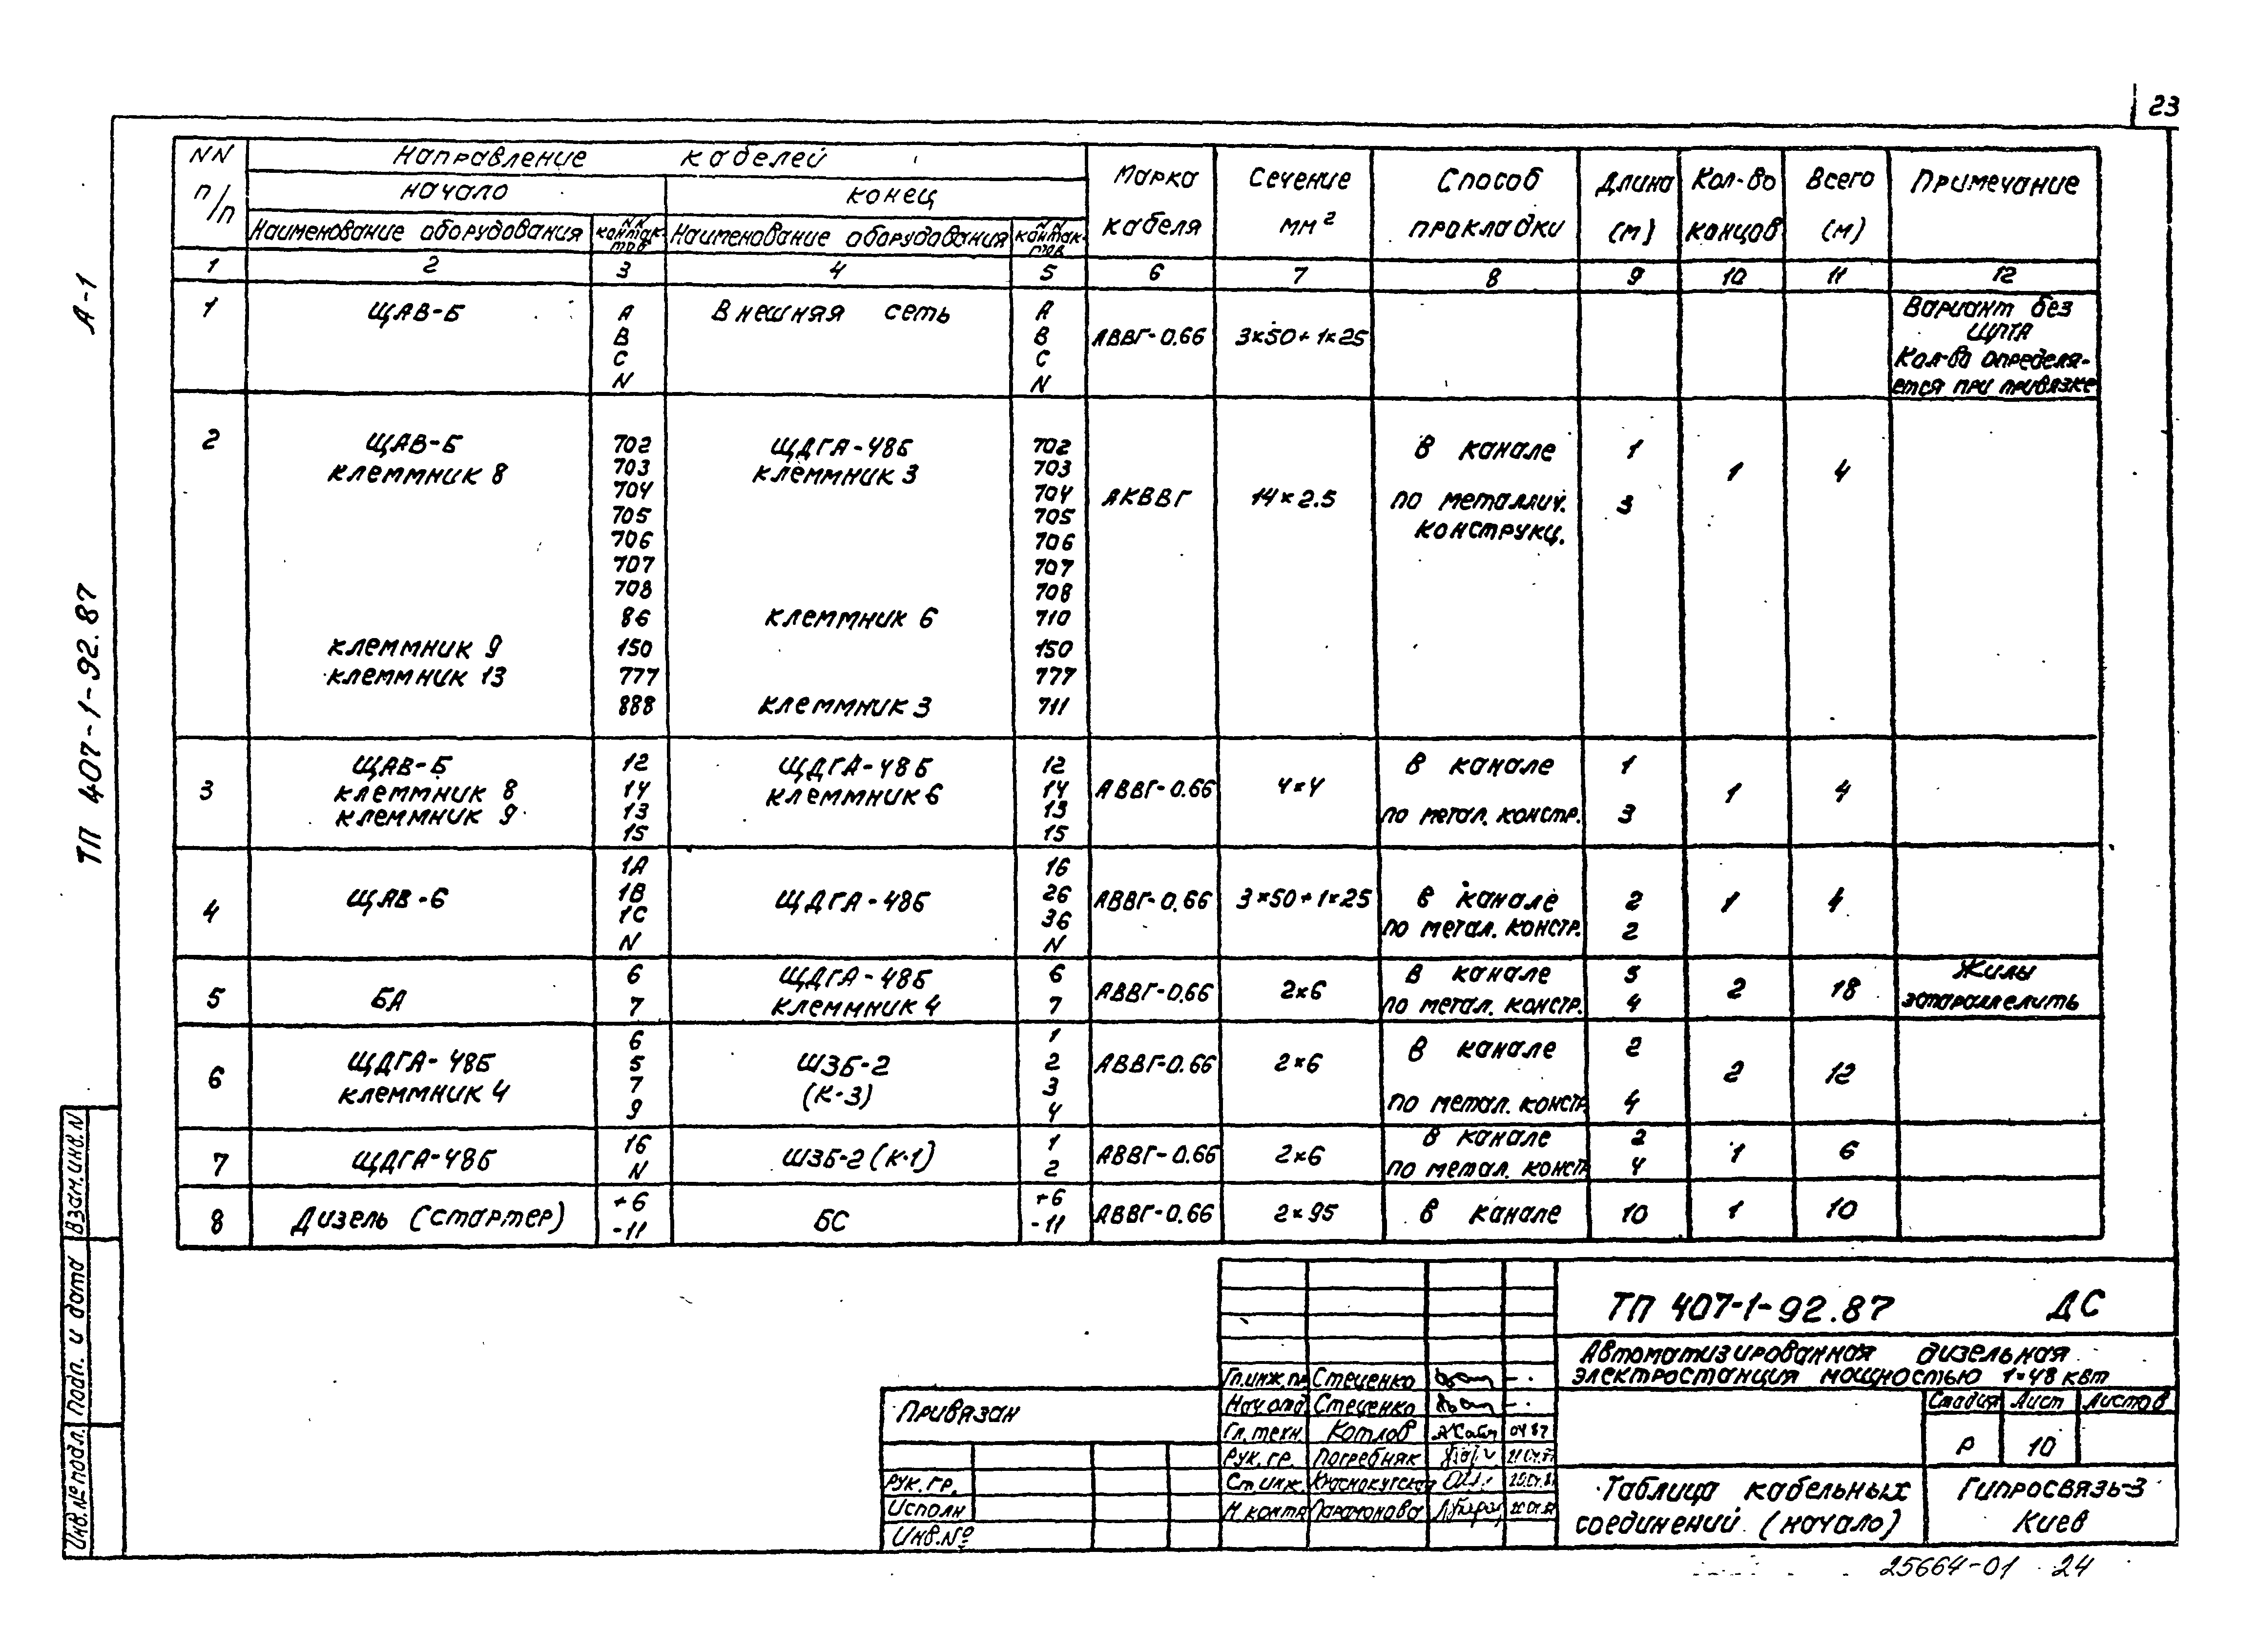 23
NN п/п Направление кабелей Марка кабеля Сечение мм² Способ прокладки Длина (м) Кол-во концов Всего (м) Примечание
начало конец
Наименование оборудования NN контактов Наименование оборудования NN контактов
1 2 3 4 5 6 7 8 9 10 11 12
1 ЩАВ-Б А Внешняя сеть А Вариант без
В В АВВГ-0.66 3×50+1×25 ЩПТА
С С Кол-во определя-
N N ется при привязке
2 ЩАВ-Б 702 ЩДГА-48Б 702 В канале 1
клеммник 8 703 клеммник 3 703 1 4
704 704 АКВВГ 14×2.5 по металлич. 3
705 705 конструкц.
706 706
707 707
708 708
86 клеммник 6 710
клеммник 9 150 150
клеммник 13 777 777
888 клеммник 3 711
ЩАВ-Б 12 ЩДГА-48Б 12 В канале 1
3 клеммник 8 14 клеммник 6 14 АВВГ-0.66 4×4 1 4
клеммник 9 13 13 по метал. констр. 3
15 15
1А 16
4 ЩАВ-6 1В ЩДГА-48Б 26 АВВГ-0.66 3×50+1×25 в канале 2 1 4
1С 36 по метал. констр. 2
N N
6 ЩДГА-48Б 6 В канале 5 Жилы
5 БА 7 клеммник 4 7 АВВГ-0.66 2×6 по метал. констр. 4 2 18 запараллелить
6 1
ЩДГА-48Б 5 ШЗБ-2 2 АВВГ-0.66 2×6 В канале 2
6 клеммник 4 7 (К-3) 3 2 12
9 4 по метал. констр. 4
16 1 В канале 2
7 ЩДГА-48Б N ШЗБ-2 (К-1) 2 АВВГ-0.66 2×6 по метал. констр 4 1 6
+6 +6
8 Дизель (стартер) -11 БС -11 АВВГ-0.66 2×95 в канале 10 1 10
А-1
ТП 407-1-92.87
Взам.инв.N
Подп. и дата
Инв.№подл.
ТП 407-1-92.87 ДС
Автоматизированная дизельная
электростанция мощностью 1×48 квт
Гл.инж.пр Стеценко
Нач.отд Стеценко
Гл.техн. Котлов 0487
Рук.гр. Погребняк
Ст.инж. Краснокутская
Н.контр Парамонова
Стадия Лист Листов
Р 10
Таблица кабельных
соединений (начало)
Гипросвязь-3
Киев
Привязан
Рук.гр.
Исполн
Инв.№
25664-01 24